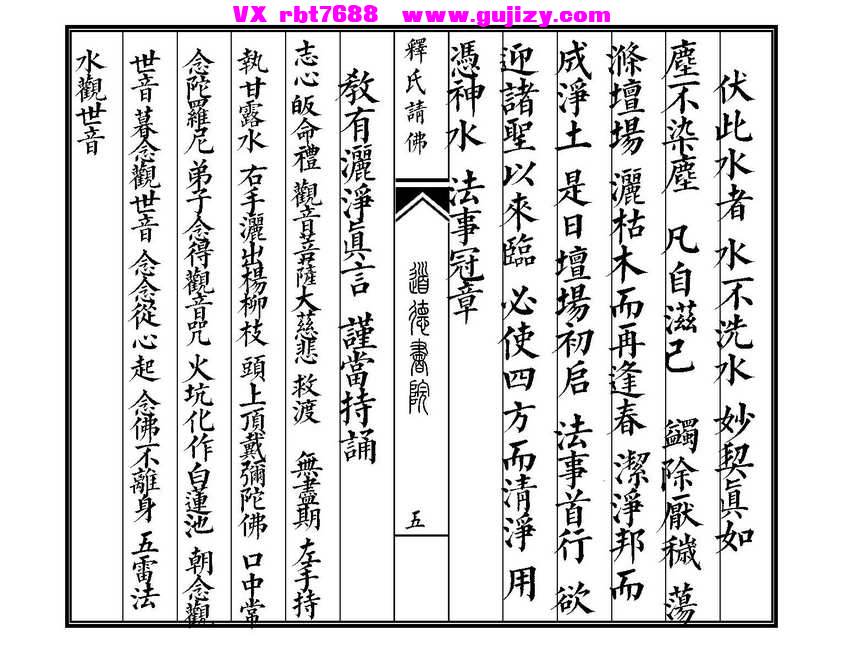 VX rbt7688 www.gujizy.com
伏此水者 水不洗水 妙契眞如
塵不染塵 凡自滋己 蠲除厭穢 蕩
滌壇場 灑枯木而再逢春 潔淨邦而
成淨土 是日壇場初启 法事首行 欲
迎諸聖以來臨 必使四方而清淨 用
憑神水 法事冠章
釋氏請佛 道德書院 五
教有灑淨眞言 謹當持誦
志心皈命禮 觀音菩薩大慈悲 救渡 無盡期 左手持
執甘露水 右手灑出楊柳枝 頭上頂戴彌陀佛 口中常
念陀羅尼 弟子念得觀音咒 火坑化作白蓮池 朝念觀
世音 暮念觀世音 念念從心起 念佛不離身 五雷法
水觀世音